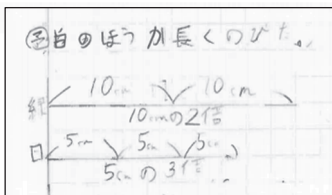 ㋵白のほうが長くのびた。
10cm 10cm
紅
10cmの2倍
5cm 5cm 5cm
白
5cmの3倍